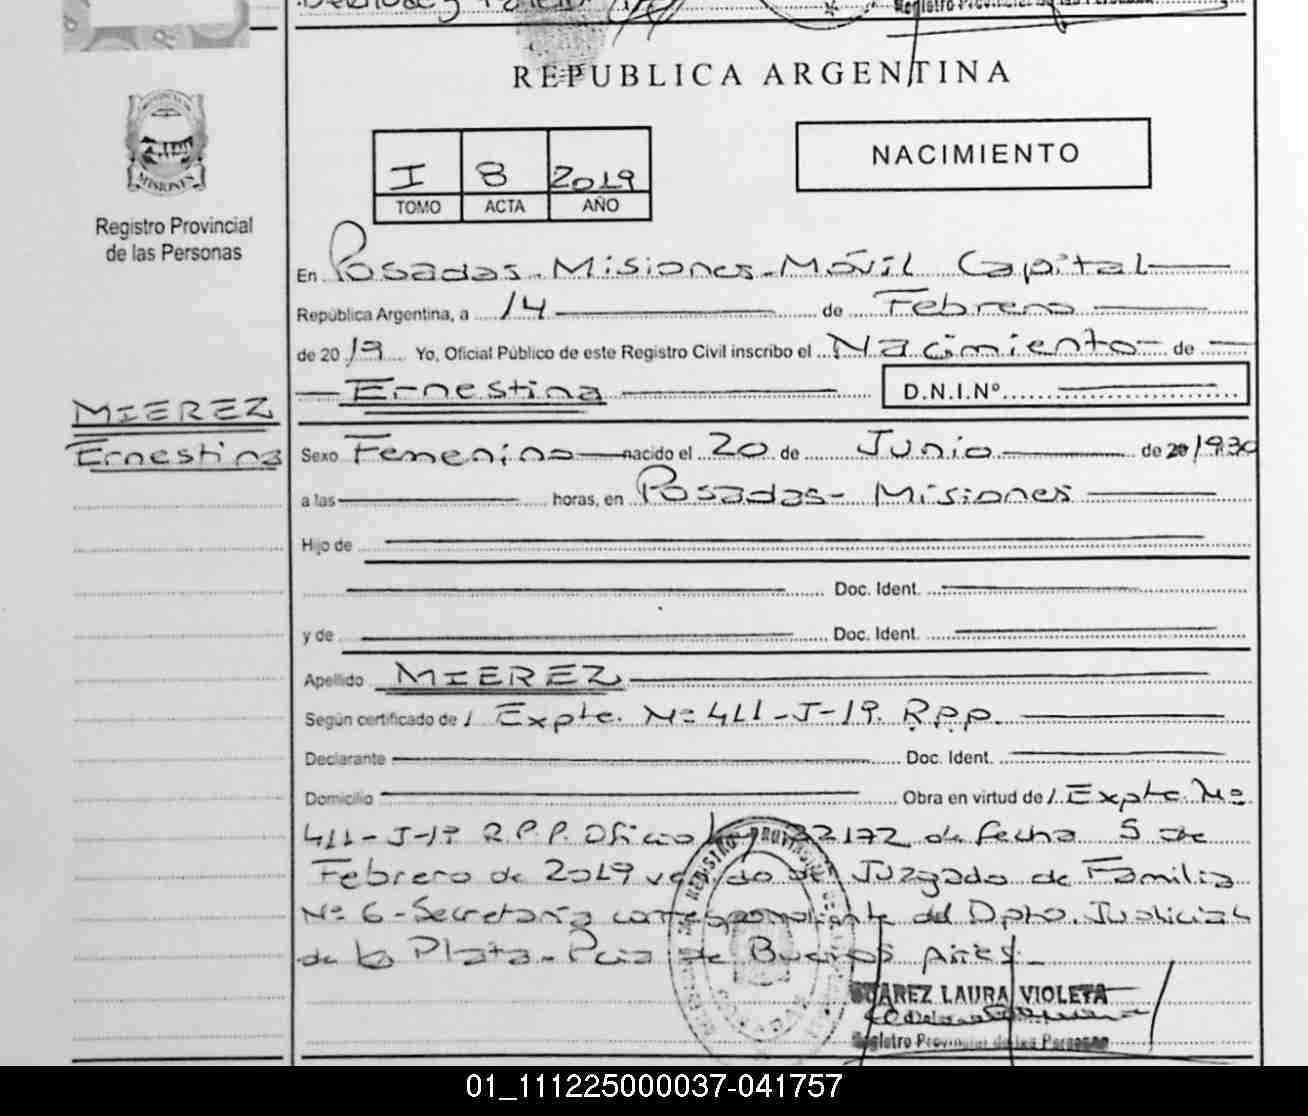 Registro Provincial de las Personas
REPUBLICA ARGENTINA
I 8 2019
TOMO ACTA AÑO
NACIMIENTO
MISIONES
Registro Provincial
de las Personas
En Posadas - Misiones - Móvil Capital
República Argentina, a 14 de Febrero
de 2019 Yo, Oficial Público de este Registro Civil inscribo el Nacimiento de
Ernestina
D.N.I.Nº
MIEREZ
Ernestina
Sexo Femenino nacido el 20 de Junio de 20 1930
a las horas, en Posadas - Misiones
Hijo de
Doc. Ident.
y de Doc. Ident.
Apellido MIEREZ
Según certificado de / Expte. Nº 411-J-19. R.P.P.
Declarante Doc. Ident.
Domicilio Obra en virtud de / Expte. Nº
411-J-19 R.P.P. Oficio 32172 de fecha 5 de
Febrero de 2019 del Juzgado de Familia
Nº 6 - Secretaría correspondiente del Dpto. Judicial
de La Plata - Pcia de Buenos Aires -
SUAREZ LAURA VIOLETA
Registro Provincial de las Personas
01_111225000037-041757